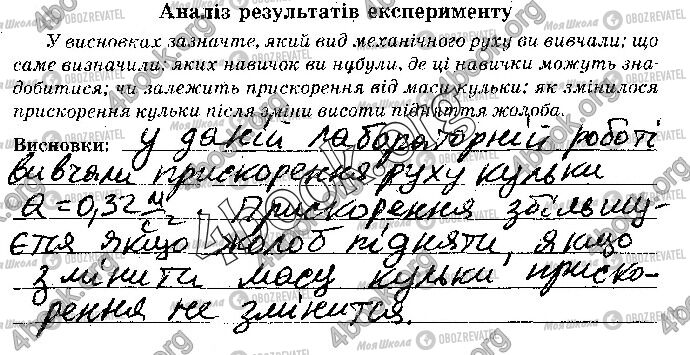 Аналіз результатів експерименту
У висновках зазначте, який вид механічного руху ви вивчали; що
саме визначили; яких навичок ви набули, де ці навички можуть зна-
добитися; чи залежить прискорення від маси кульки; як змінилося
прискорення кульки після зміни висоти підняття жолоба.
Висновки: у даній лабораторній роботі
вивчали прискорення руху кульки
a = 0,32 м/с². Прискорення збільшу-
ється якщо жолоб підняти, якщо
змінити масу кульки приско-
рення не змінится.